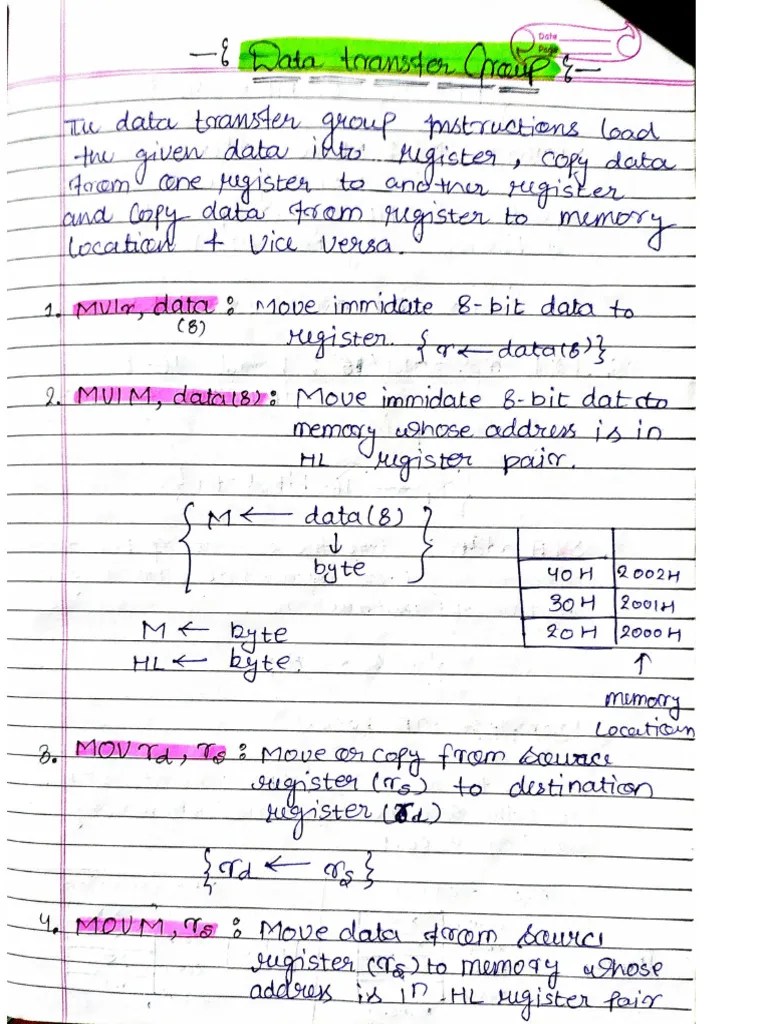 Date
Page
Data transfer Group
The data transfer group instructions load
the given data into register, copy data
from one register to another register
and copy data from register to memory
location + vice versa.
1. MVI r, data : Move immidate 8-bit data to
(8)
register. { r ← data(8)}.
2. MVI M, data(8): Move immidate 8-bit dat to
memory whose address is in
HL register pair.
{ M ← data(8) }
↓
byte
40H 2002H
30H 2001H
20H 2000H
M ← byte
HL ← byte.
↑
memory
Location
3. MOV rd, rs : Move or copy from source
register (rs) to destination
register (rd)
{rd ← rs}
4. MOV M, rs : Move data from sourci
register (rs) to memory whose
address is in HL register pair